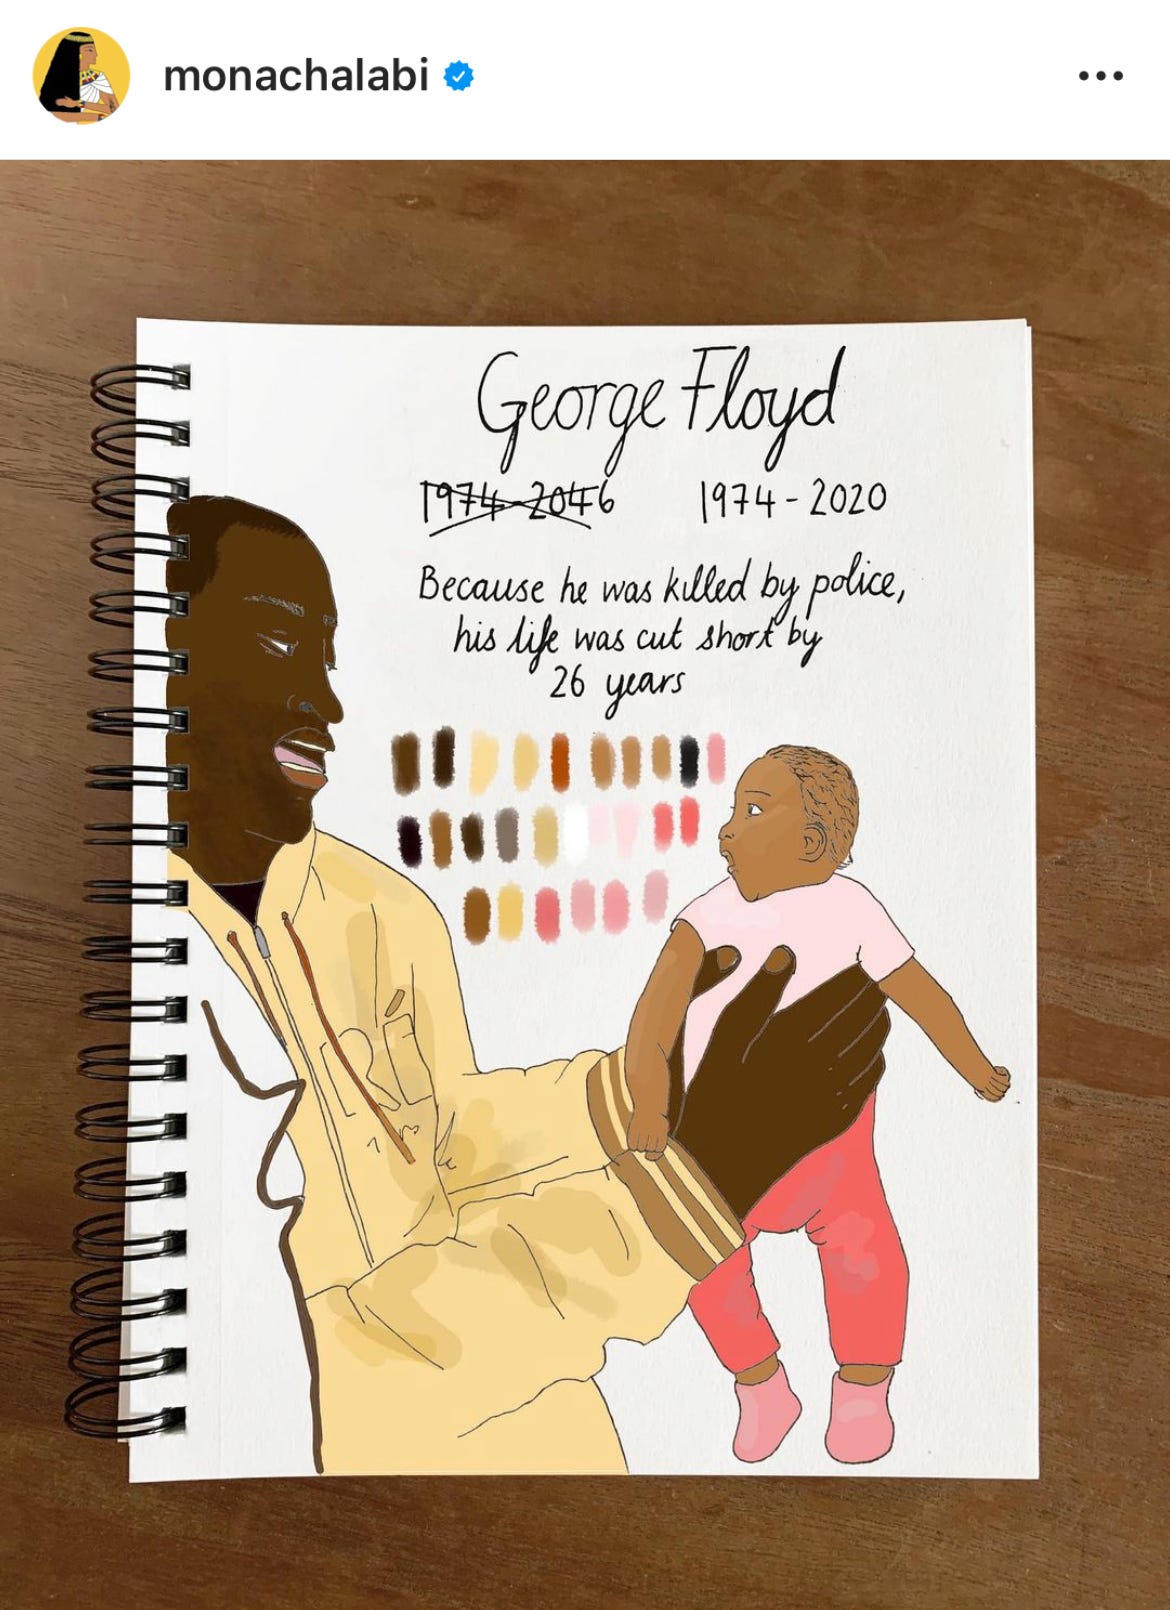 monachalabi
George Floyd
1974-2046 1974-2020
Because he was killed by police,
his life was cut short by
26 years